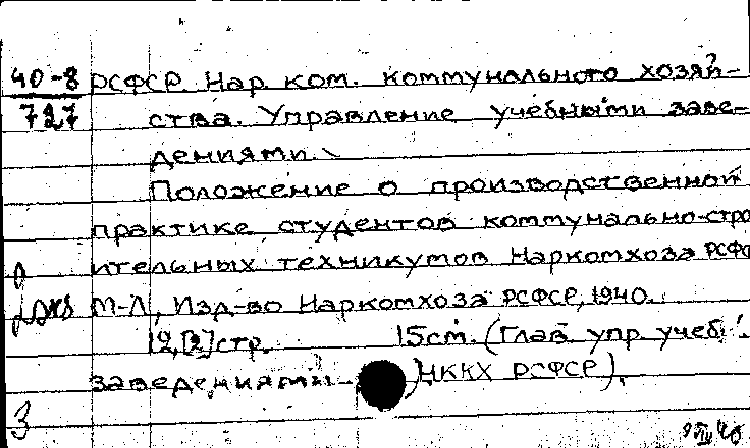 40-8 РСФСР. Нар. ком. коммунального хозяй-
727 ства. Управление учебными заве-
дениями.
Положение о производственной
практике студентов коммунально-стро
ительных техникумов Наркомхоза РСФСР
М-Л, Изд-во Наркомхоза РСФСР, 1940.
12,[2]стр. 15см. (Глав. упр. учеб.
заведениями НККХ РСФСР).
3